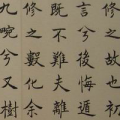 修之故也初
言兮後悔遁
既不難夫離
修之數化余
九畹兮又樹